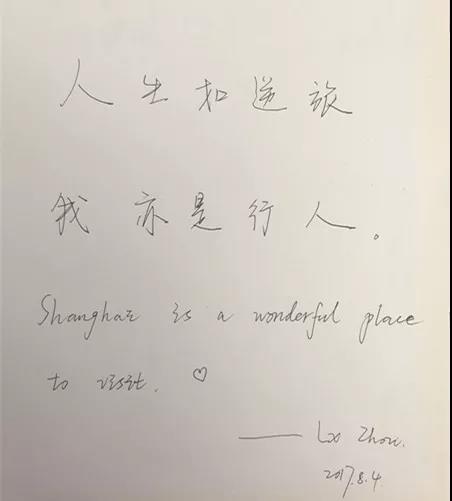 人生如逆旅
我亦是行人。
Shanghai is a wonderful place
to visit. ♡
—— Zhou.
2017.8.4.